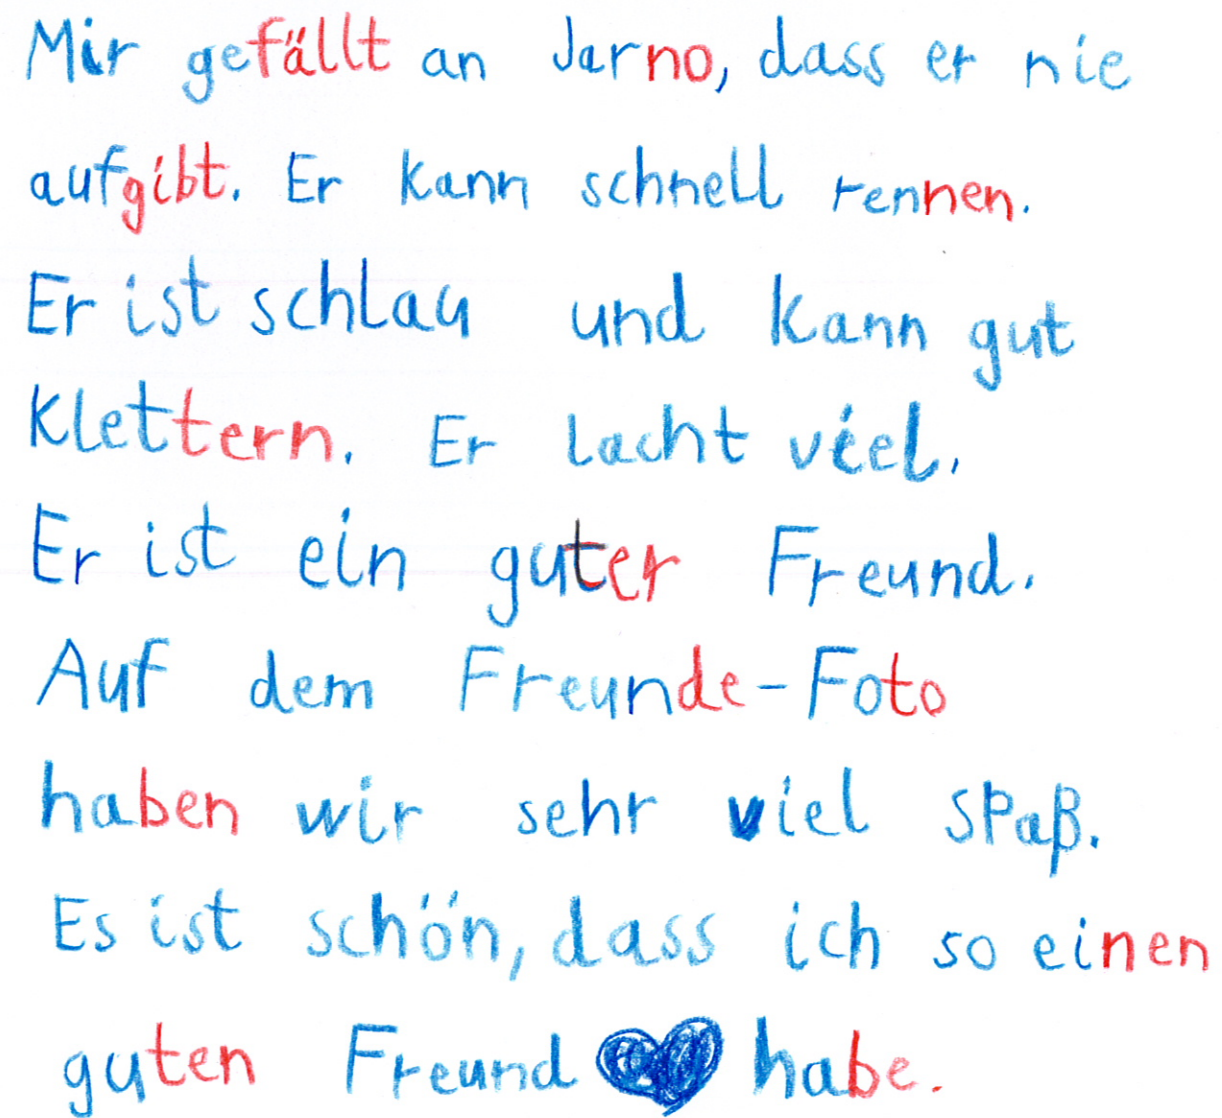 Mir gefällt an Jarno, dass er nie
aufgibt. Er kann schnell rennen.
Er ist schlau und kann gut
klettern. Er lacht viel.
Er ist ein guter Freund.
Auf dem Freunde-Foto
haben wir sehr viel Spaß.
Es ist schön, dass ich so einen
guten Freund habe.